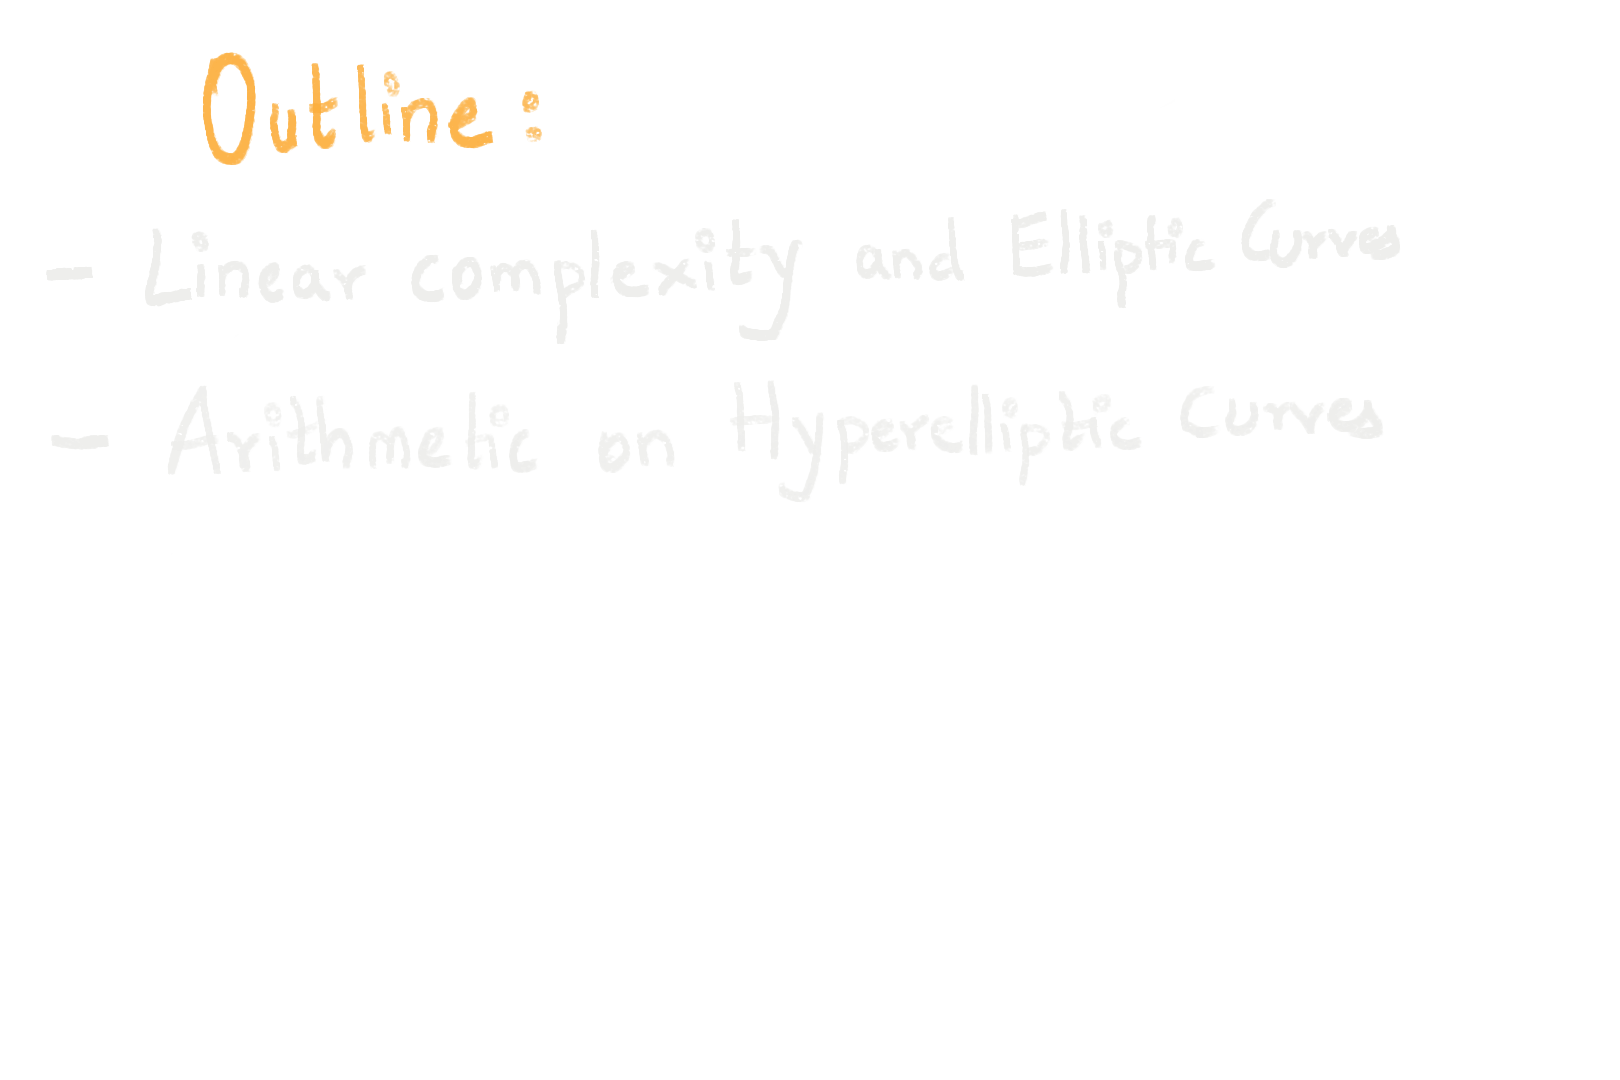 Outline:
- Linear complexity and Elliptic Curves
- Arithmetic on Hyperelliptic Curves